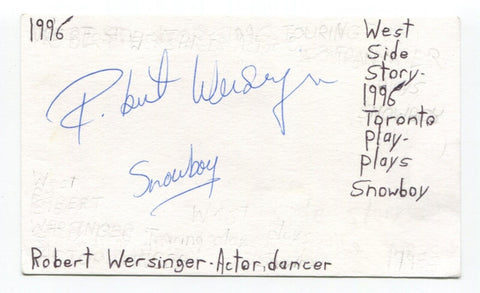 1996
Robert Wersinger
Snowboy
West
Side
Story-
1996
Toronto
Play-
plays
Snowboy
Robert Wersinger-Actor,dancer